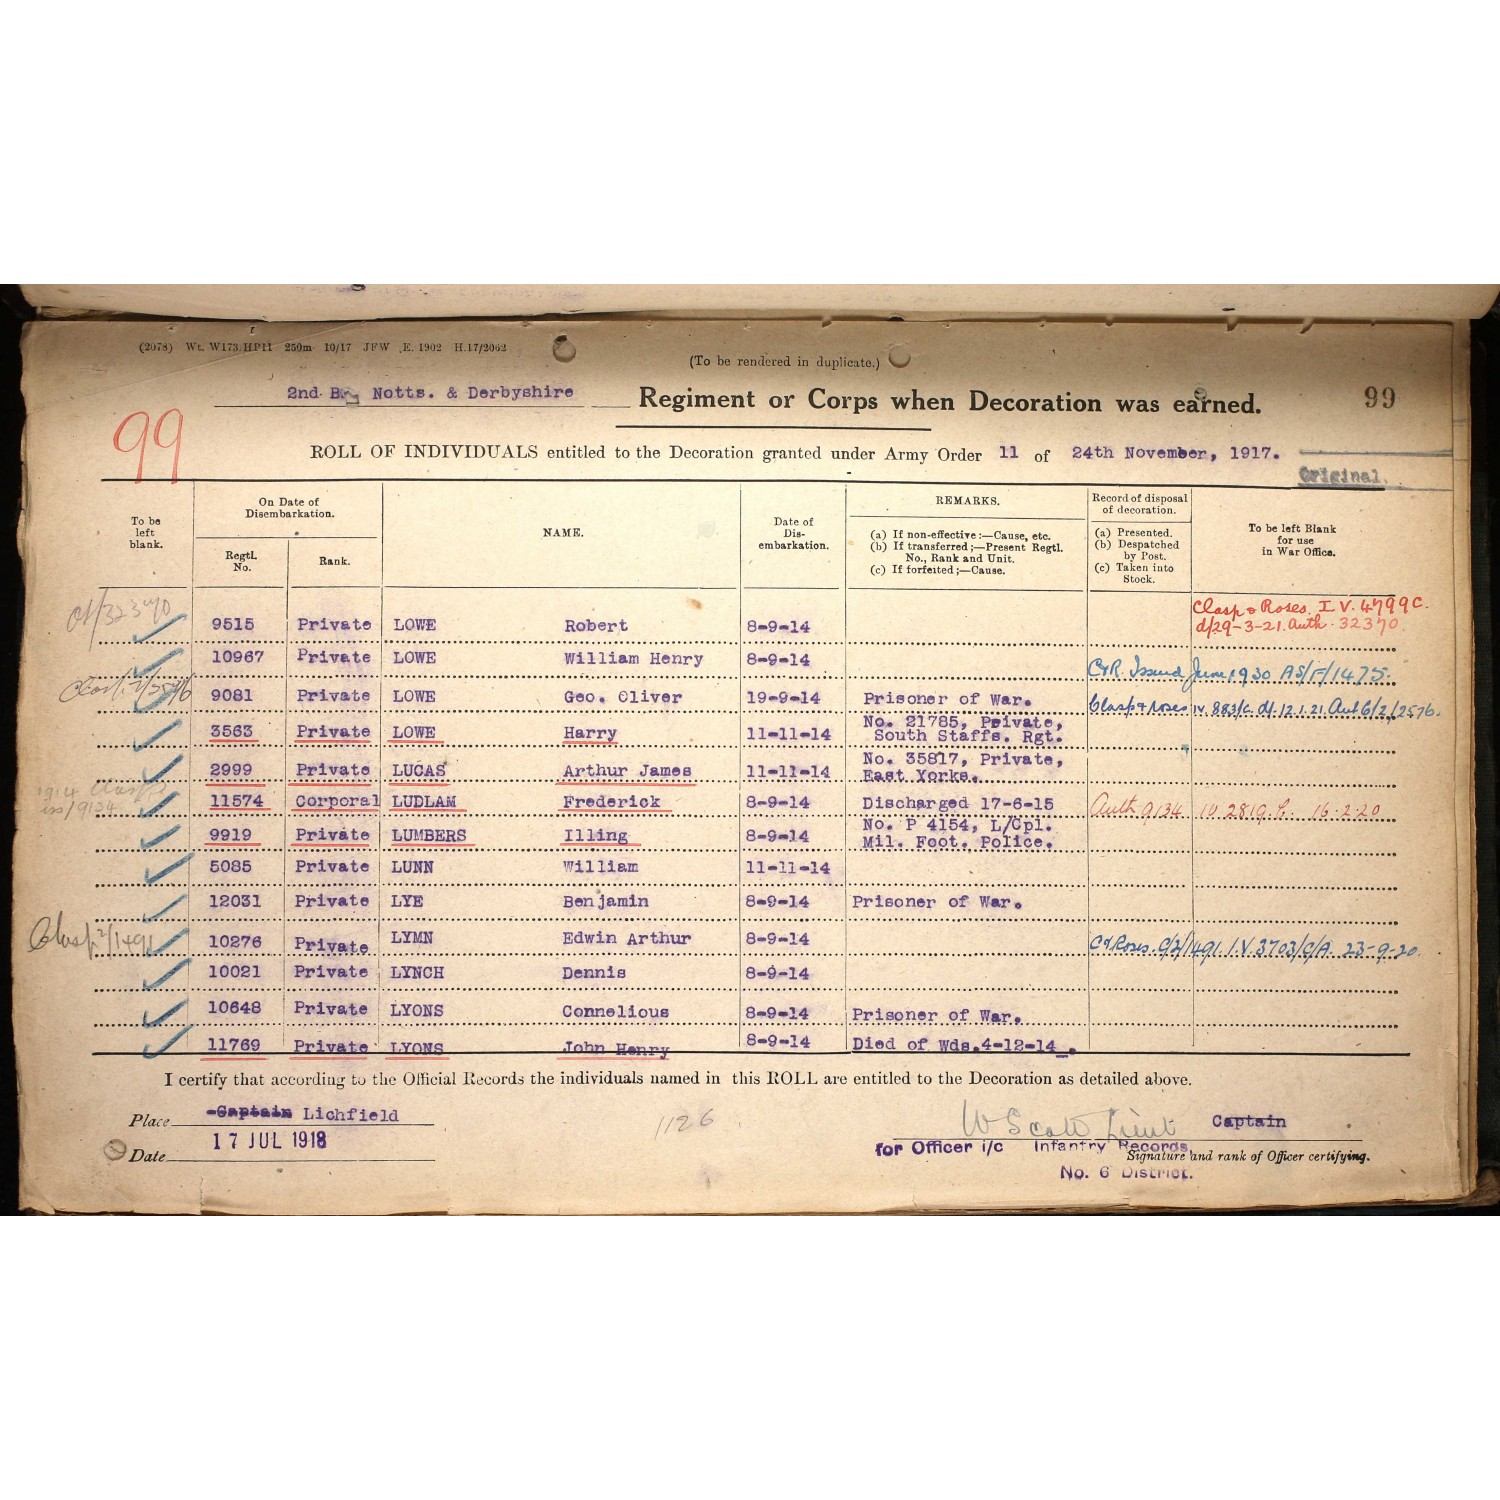 (2078) Wt. W173. HP11 250m 10/17 JFW .E. 1902 H.17/2062
(To be rendered in duplicate.)
2nd. Notts. & Derbyshire Regiment or Corps when Decoration was earned. 99
99
ROLL OF INDIVIDUALS entitled to the Decoration granted under Army Order 11 of 24th November, 1917.
Original.
To be left blank.
On Date of Disembarkation.
Regtl. No.
Rank.
NAME.
Date of Dis-embarkation.
REMARKS.
(a) If non-effective:—Cause, etc.
(b) If transferred;—Present Regtl. No., Rank and Unit.
(c) If forfeited;—Cause.
Record of disposal of decoration.
(a) Presented.
(b) Despatched by Post.
(c) Taken into Stock.
To be left Blank for use in War Office.
9515 Private LOWE Robert 8-9-14 Clasp & Roses. I V. 4799C. d/29-3-21. Auth. 32370.
10967 Private LOWE William Henry 8-9-14 C&R. Issued June 1930 AS/F/1475.
9081 Private LOWE Geo. Oliver 19-9-14 Prisoner of War. Clasp & Roses IV. 883/C. d/. 12.1.21. Aut 6/2/2576.
3563 Private LOWE Harry 11-11-14 No. 21785, Private, South Staffs. Rgt.
2999 Private LUCAS Arthur James 11-11-14 No. 35817, Private, East Yorks.
1914 Clasp iss/9134 11574 Corporal LUDLAM Frederick 8-9-14 Discharged 17-6-15 Auth 9134 IV 2819. 16.2.20
9919 Private LUMBERS Illing 8-9-14 No. P 4154, L/Cpl. Mil. Foot. Police.
5085 Private LUNN William 11-11-14
12031 Private LYE Benjamin 8-9-14 Prisoner of War.
Clasp 2/1491 10276 Private LYMN Edwin Arthur 8-9-14 C&Roses. 6/2/1491. I.V 3703/C/A. 23-9-20.
10021 Private LYNCH Dennis 8-9-14
10648 Private LYONS Connelious 8-9-14 Prisoner of War.
11769 Private LYONS John Henry 8-9-14 Died of Wds. 4-12-14.
I certify that according to the Official Records the individuals named in this ROLL are entitled to the Decoration as detailed above.
Place Captain Lichfield
17 JUL 1918
Date
1126
W Scott Lieut Captain
for Officer i/c Infantry Records,
Signature and rank of Officer certifying.
No. 6 District.